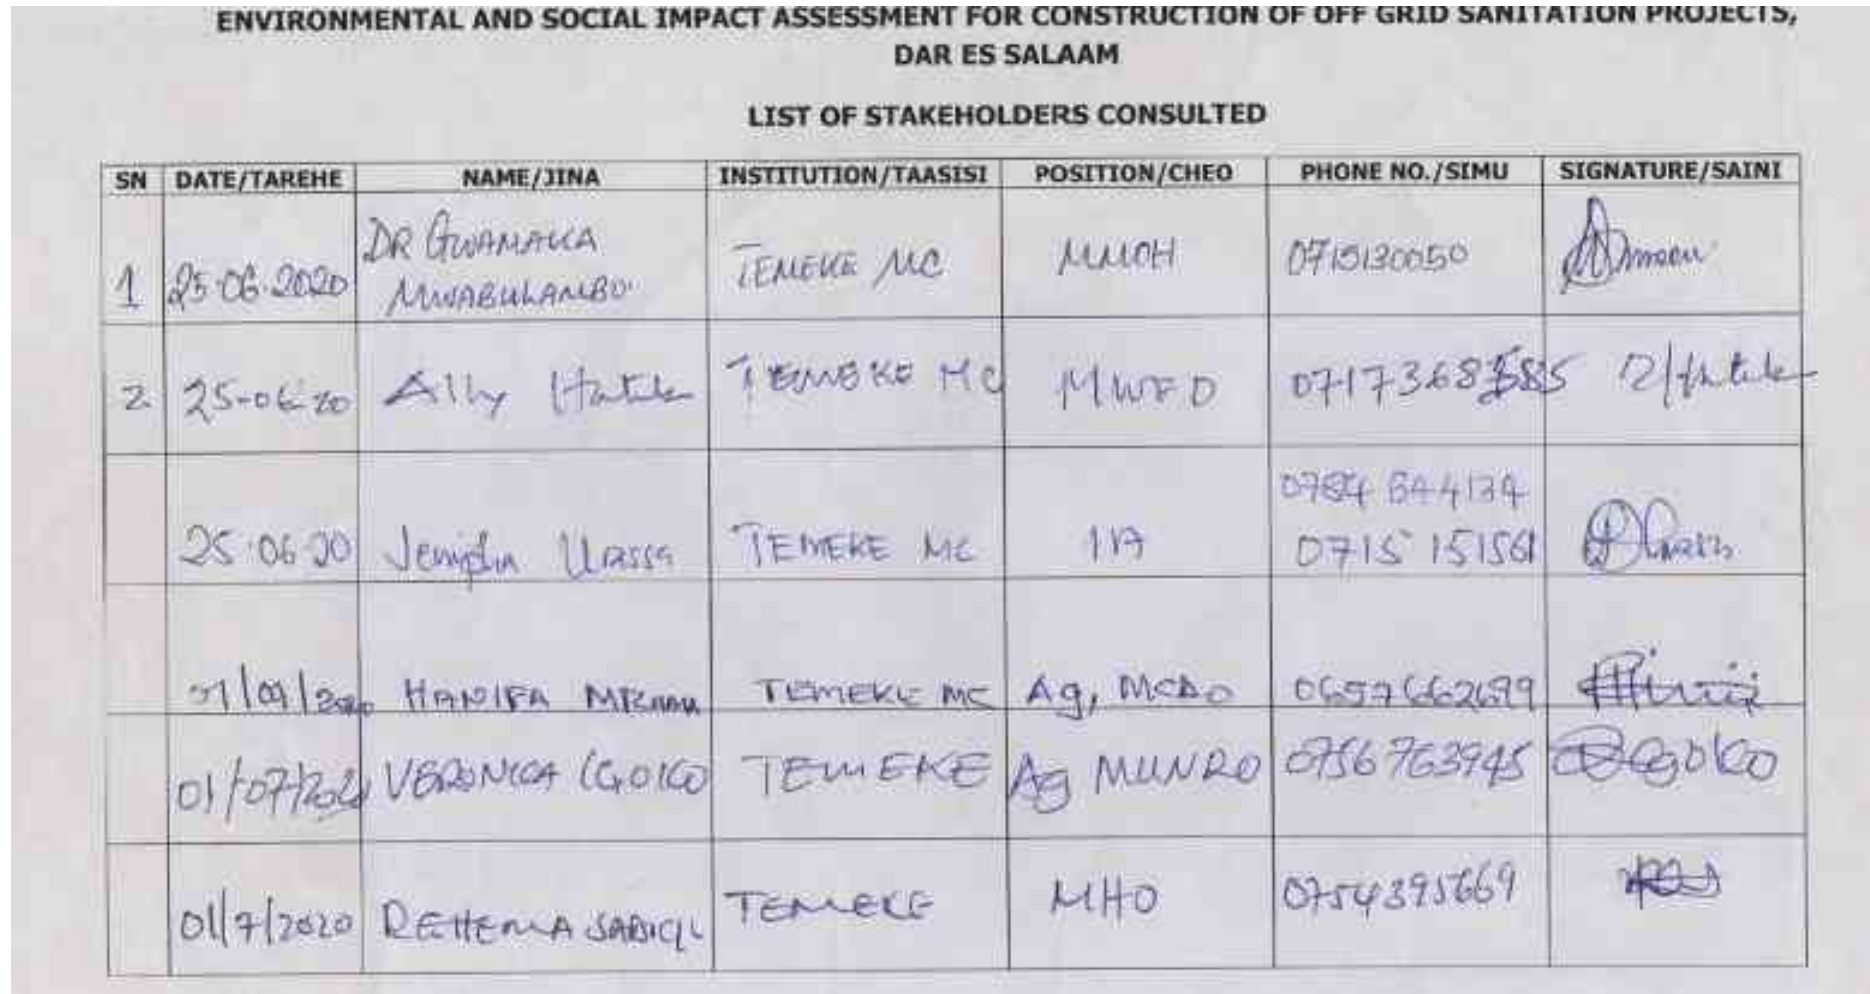 ENVIRONMENTAL AND SOCIAL IMPACT ASSESSMENT FOR CONSTRUCTION OF OFF GRID SANITATION PROJECTS,
DAR ES SALAAM
LIST OF STAKEHOLDERS CONSULTED
SN DATE/TAREHE NAME/JINA INSTITUTION/TAASISI POSITION/CHEO PHONE NO./SIMU SIGNATURE/SAINI
1 25.06.2020 DR GWAMAKA MWABULAMBO TEMEKE MC MMOH 0715130050
2 25-06-20 Ally TEMEKE MC
25.06.20 Urassa TEMEKE MC 0715 151561
HANIFA TEMEKE MC Ag, MCDO 0657662699
01/07/2020 VERONICA TEMEKE Ag 0756763945
01/7/2020 REHEMA TEMEKE MHO 0754395669